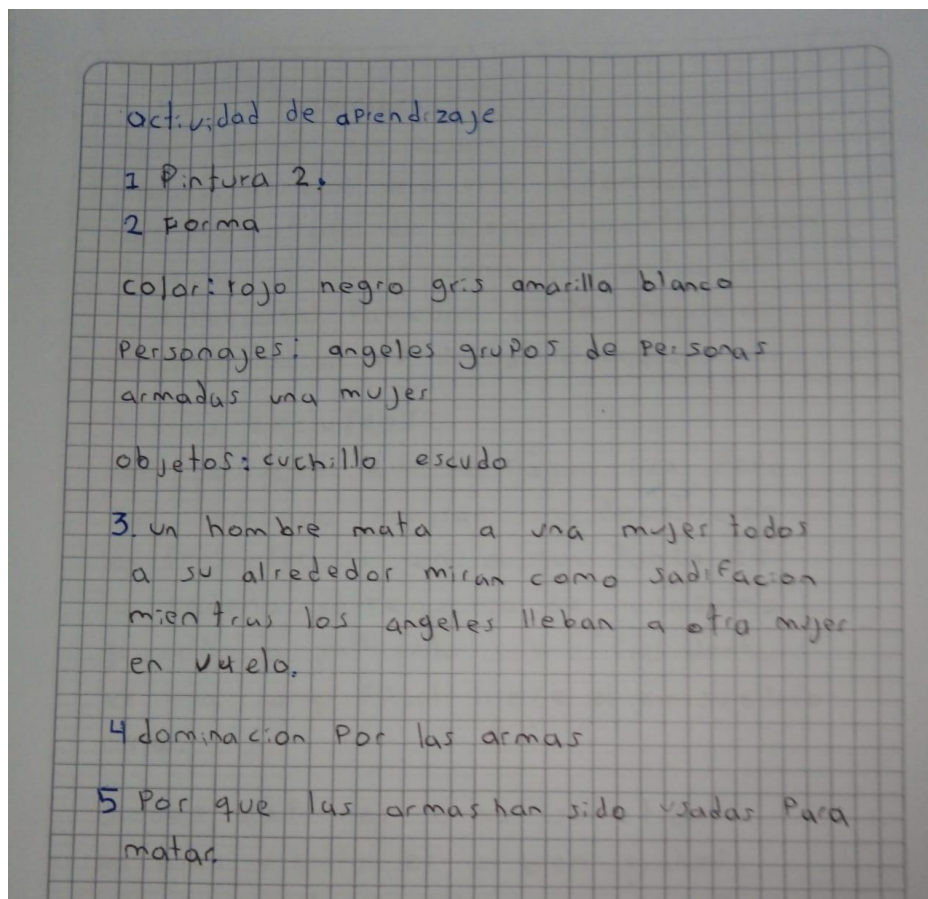 actividad de aprendizaje
1 Pintura 2.
2 Forma
color: rojo negro gris amarilla blanco
Personajes: angeles grupos de personas
armadas una mujer
objetos: cuchillo escudo
3. un hombre mata a una mujer todos
a su alrededor miran como sadifacion
mientras los angeles lleban a otra mujer
en vuelo.
4 dominacion Por las armas
5 Por que las armas han sido usadas Para
matar.